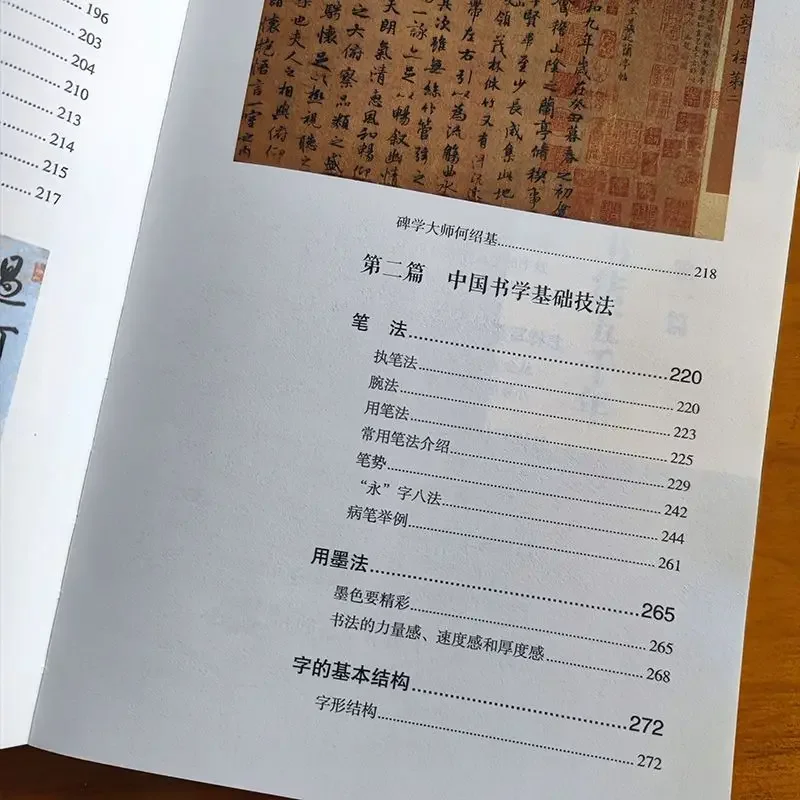 196
203
204
210
213
214
215
217
蘭亭八柱第二
和九年歲在癸丑暮春之初會
稽山陰之蘭亭脩稧事
賢畢至少長咸集此地
領茂林脩竹又有清流激
帶左右引以為流觴曲水
其次雖無絲竹管弦之
一詠上足以暢敘幽情
天朗氣清惠風和暢仰
之大俯察品類之盛
騁懷足以極視聽之
也夫人之相與俯仰
諸懷抱悟言一室之內
碑学大师何绍基 218
第二篇 中国书学基础技法
笔 法 220
执笔法 220
腕法 223
用笔法 225
常用笔法介绍 229
笔势 242
“永”字八法 244
病笔举例 261
用墨法 265
墨色要精彩 265
书法的力量感、速度感和厚度感 268
字的基本结构 272
字形结构 272